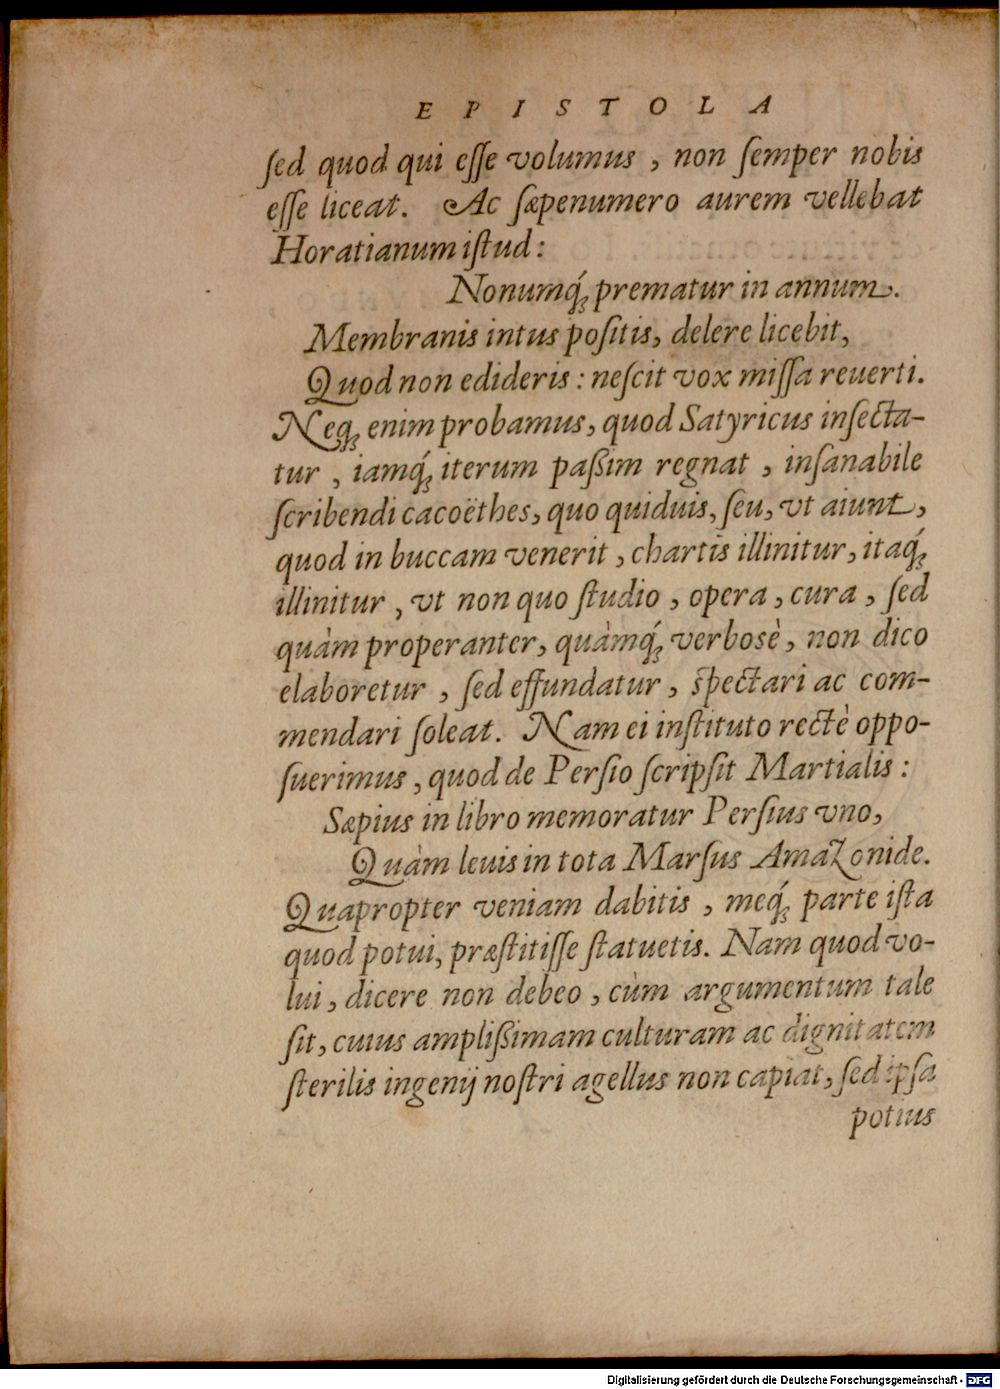 EPISTOLA
ſed quod qui eſſe volumus, non ſemper nobis
eſſe liceat. Ac ſæpenumero aurem vellebat
Horatianum iſtud:
Nonumq́; prematur in annum.
Membranis intus poſitis, delere licebit,
Quod non edideris: neſcit vox miſſa reuerti.
Neq; enim probamus, quod Satyricus inſecta-
tur, iamq́; iterum paßim regnat, inſanabile
ſcribendi cacoëthes, quo quiduis, ſeu, vt aiunt,
quod in buccam venerit, chartis illinitur, itaq́;
illinitur, vt non quo ſtudio, opera, cura, ſed
quàm properanter, quàmq́; verbosè, non dico
elaboretur, ſed effundatur, ſpectari ac com-
mendari ſoleat. Nam ei inſtituto rectè oppo-
ſuerimus, quod de Perſio ſcripſit Martialis:
Sæpius in libro memoratur Perſius vno,
Quàm leuis in tota Marſus Amazonide.
Quapropter veniam dabitis, meq́; parte iſta
quod potui, præſtitiſſe ſtatuetis. Nam quod vo-
lui, dicere non debeo, cùm argumentum tale
ſit, cuius amplißimam culturam ac dignitatem
ſterilis ingenij noſtri agellus non capiat, ſed ipſa
potius
Digitalisierung gefördert durch die Deutsche Forschungsgemeinschaft - DFG